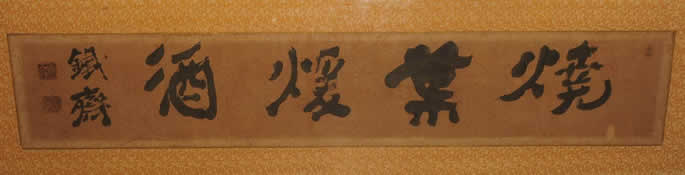 燒葉煖酒
鐵齋